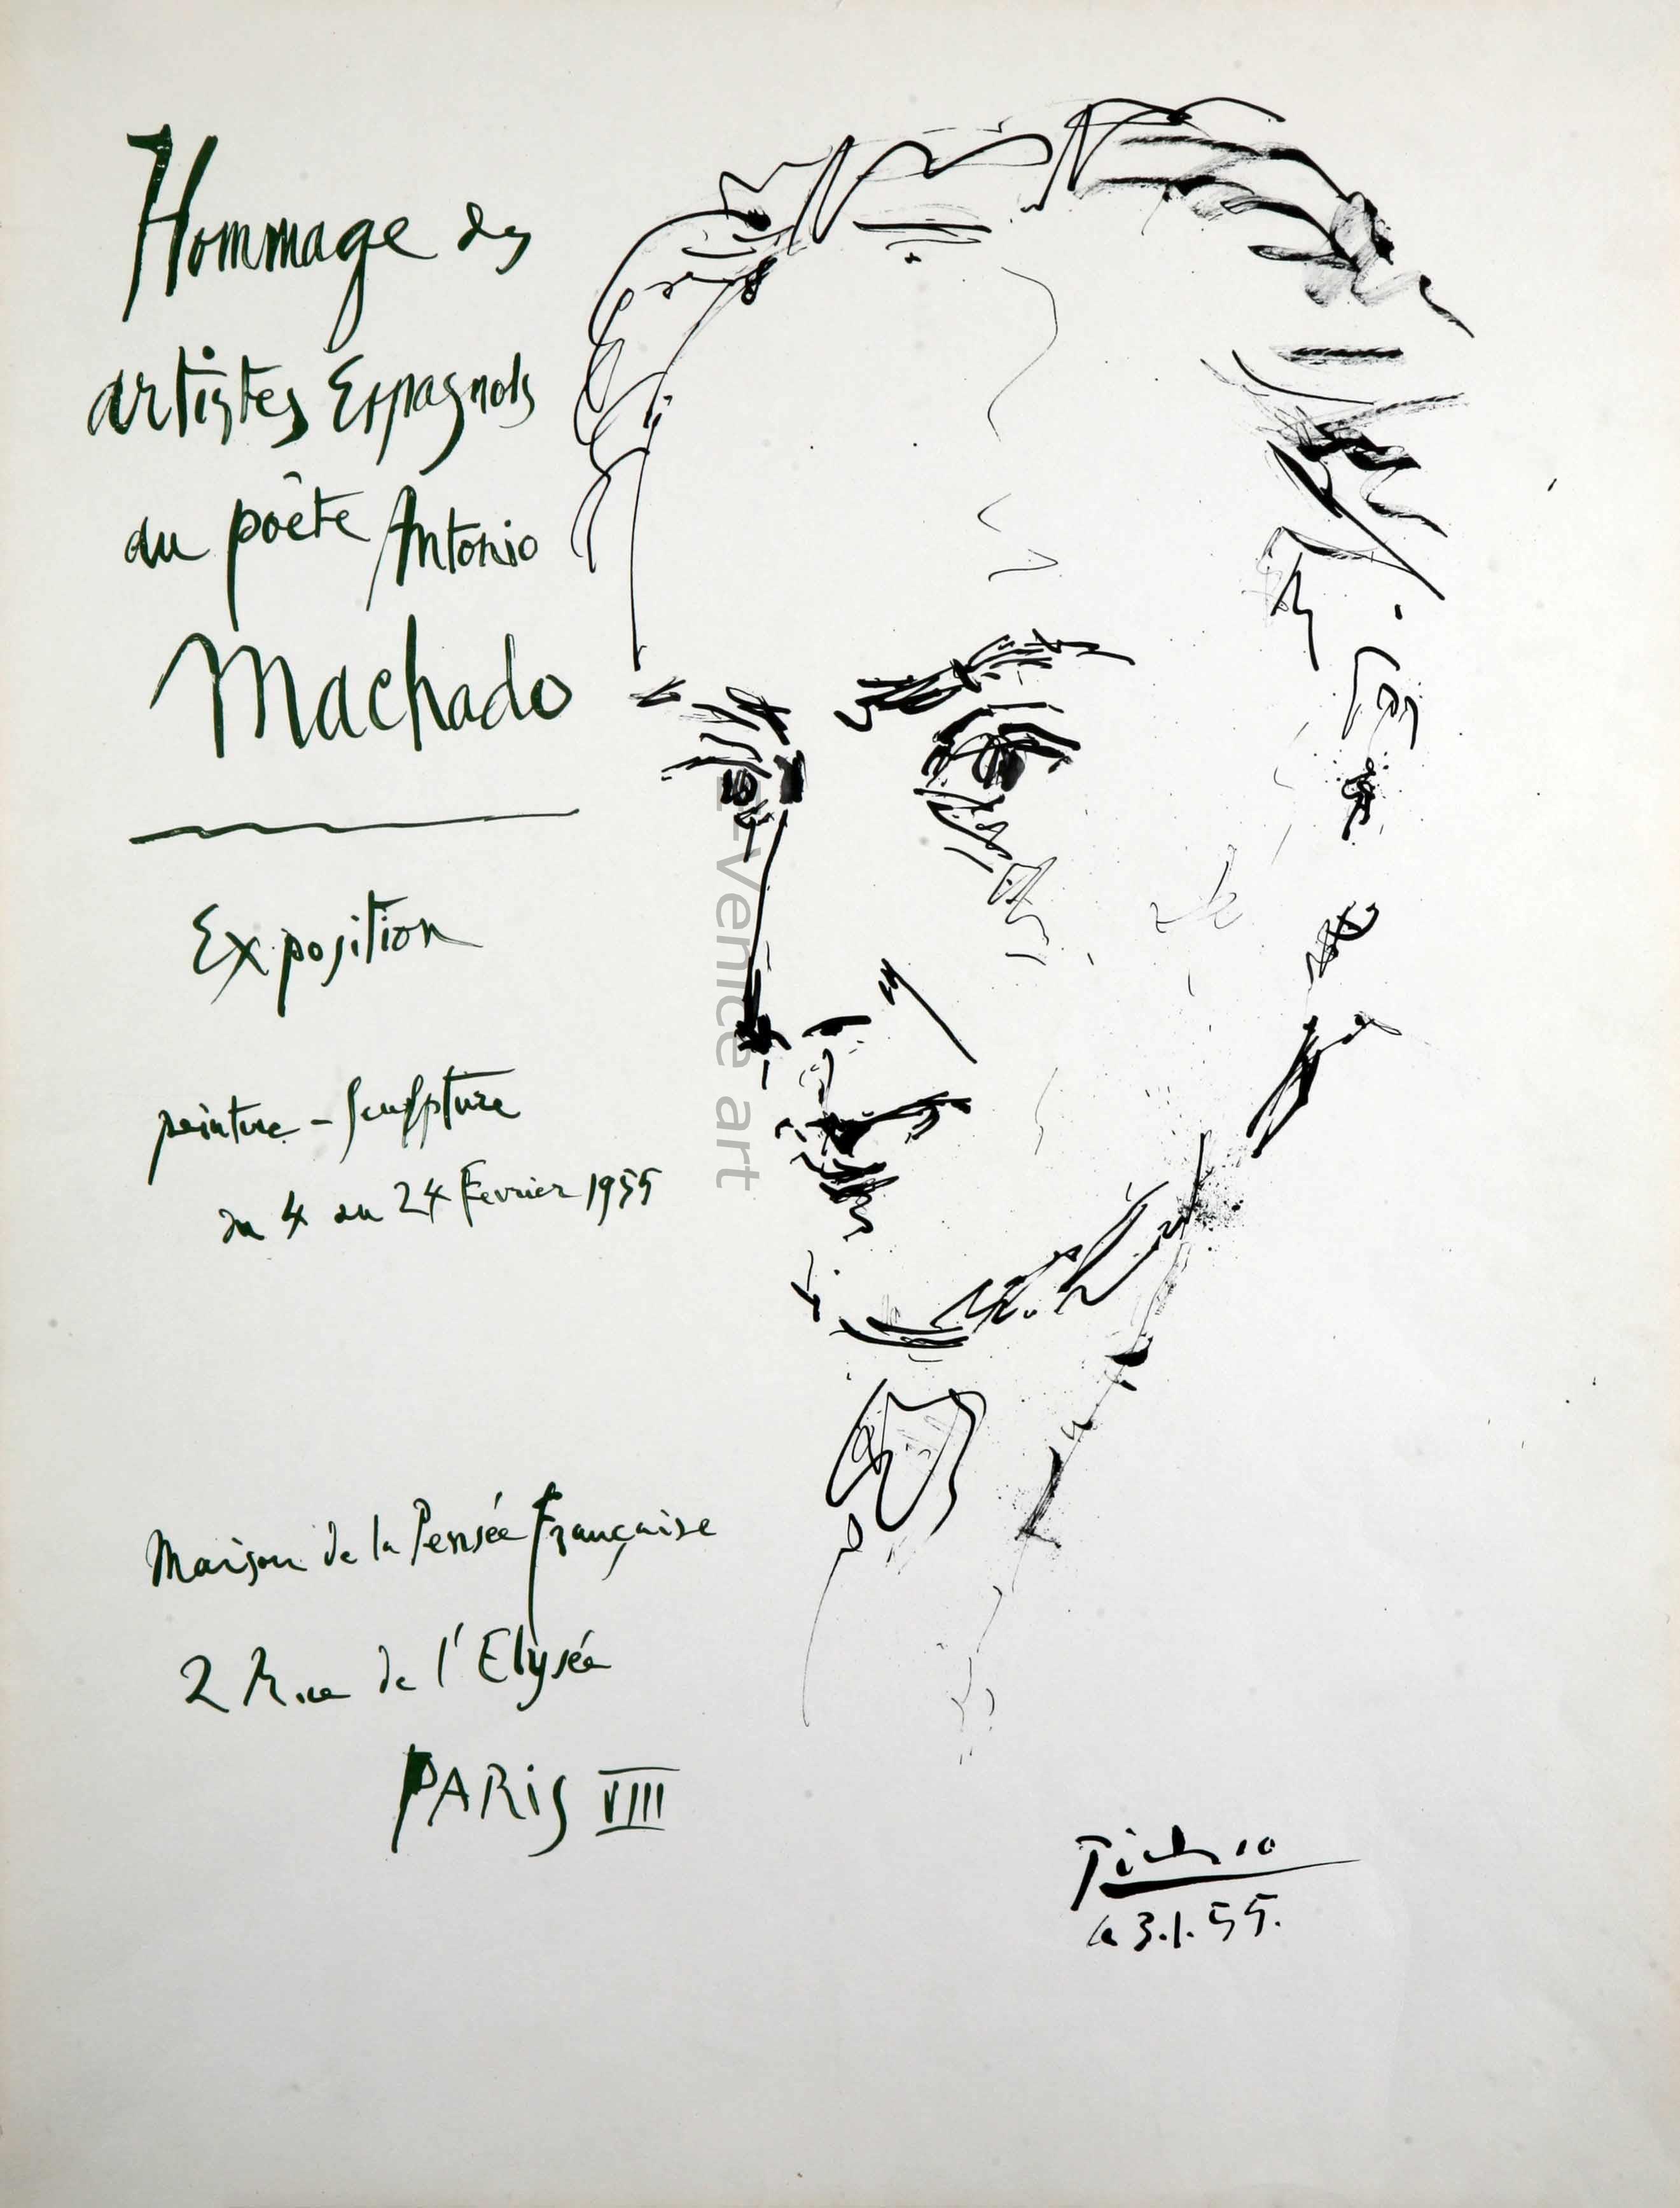 Hommage des
artistes Espagnols
au poête Antonio
Machado
Exposition
peinture - Sculpture
du 4 au 24 Fevrier 1955
Maison de la Pensée Française
2 Rue de l'Elysée
PARiS VIII
Picasso
le 3.1.55.
E-Venice art